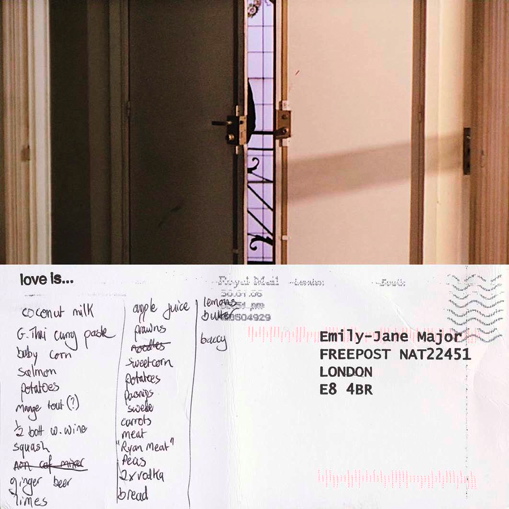 love is...
coconut milk
G. Thai curry paste
baby corn
salmon
potatoes
mange tout (?)
1/2 bott w. wine
squash
ginger beer
limes
apple juice
prawns
noodles
sweetcorn
potatoes
parsnips
swede
carrots
meat
"Ryan meat"
Peas
2 x vodka
bread
lemons
butter
baccy
Royal Mail
London
South
30.01.06
50504929
Emily-Jane Major
FREEPOST NAT22451
LONDON
E8 4BR